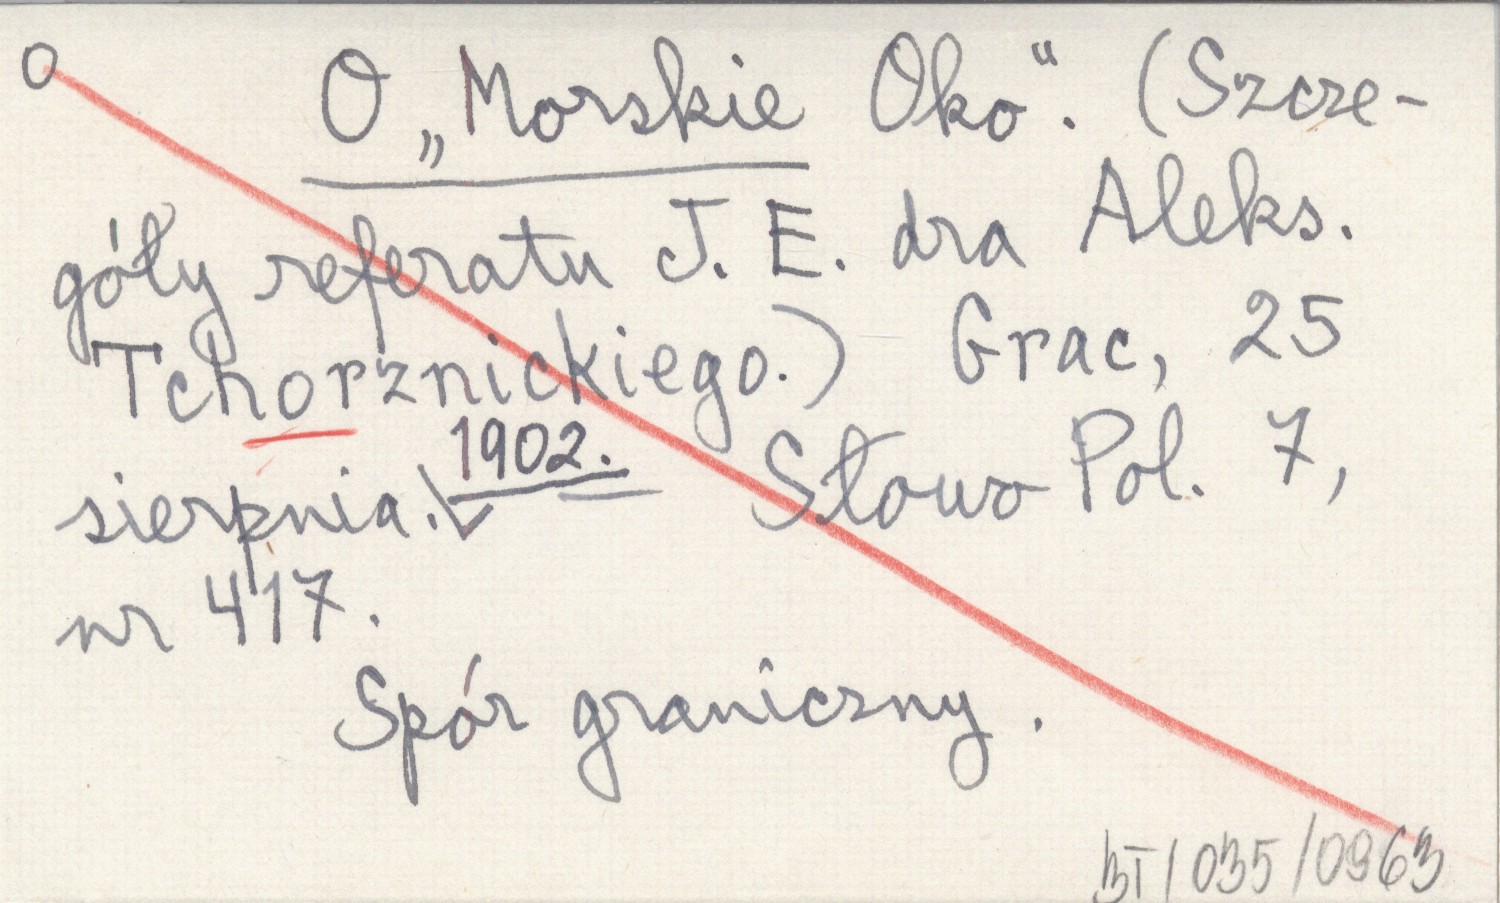 O „Morskie Oko“. (Szcze-
góły referatu J. E. dra Aleks.
Tchorznickiego.) Grac, 25
sierpnia. 1902. Słowo Pol. 7,
nr 417.
Spór graniczny.
BT/035/0963